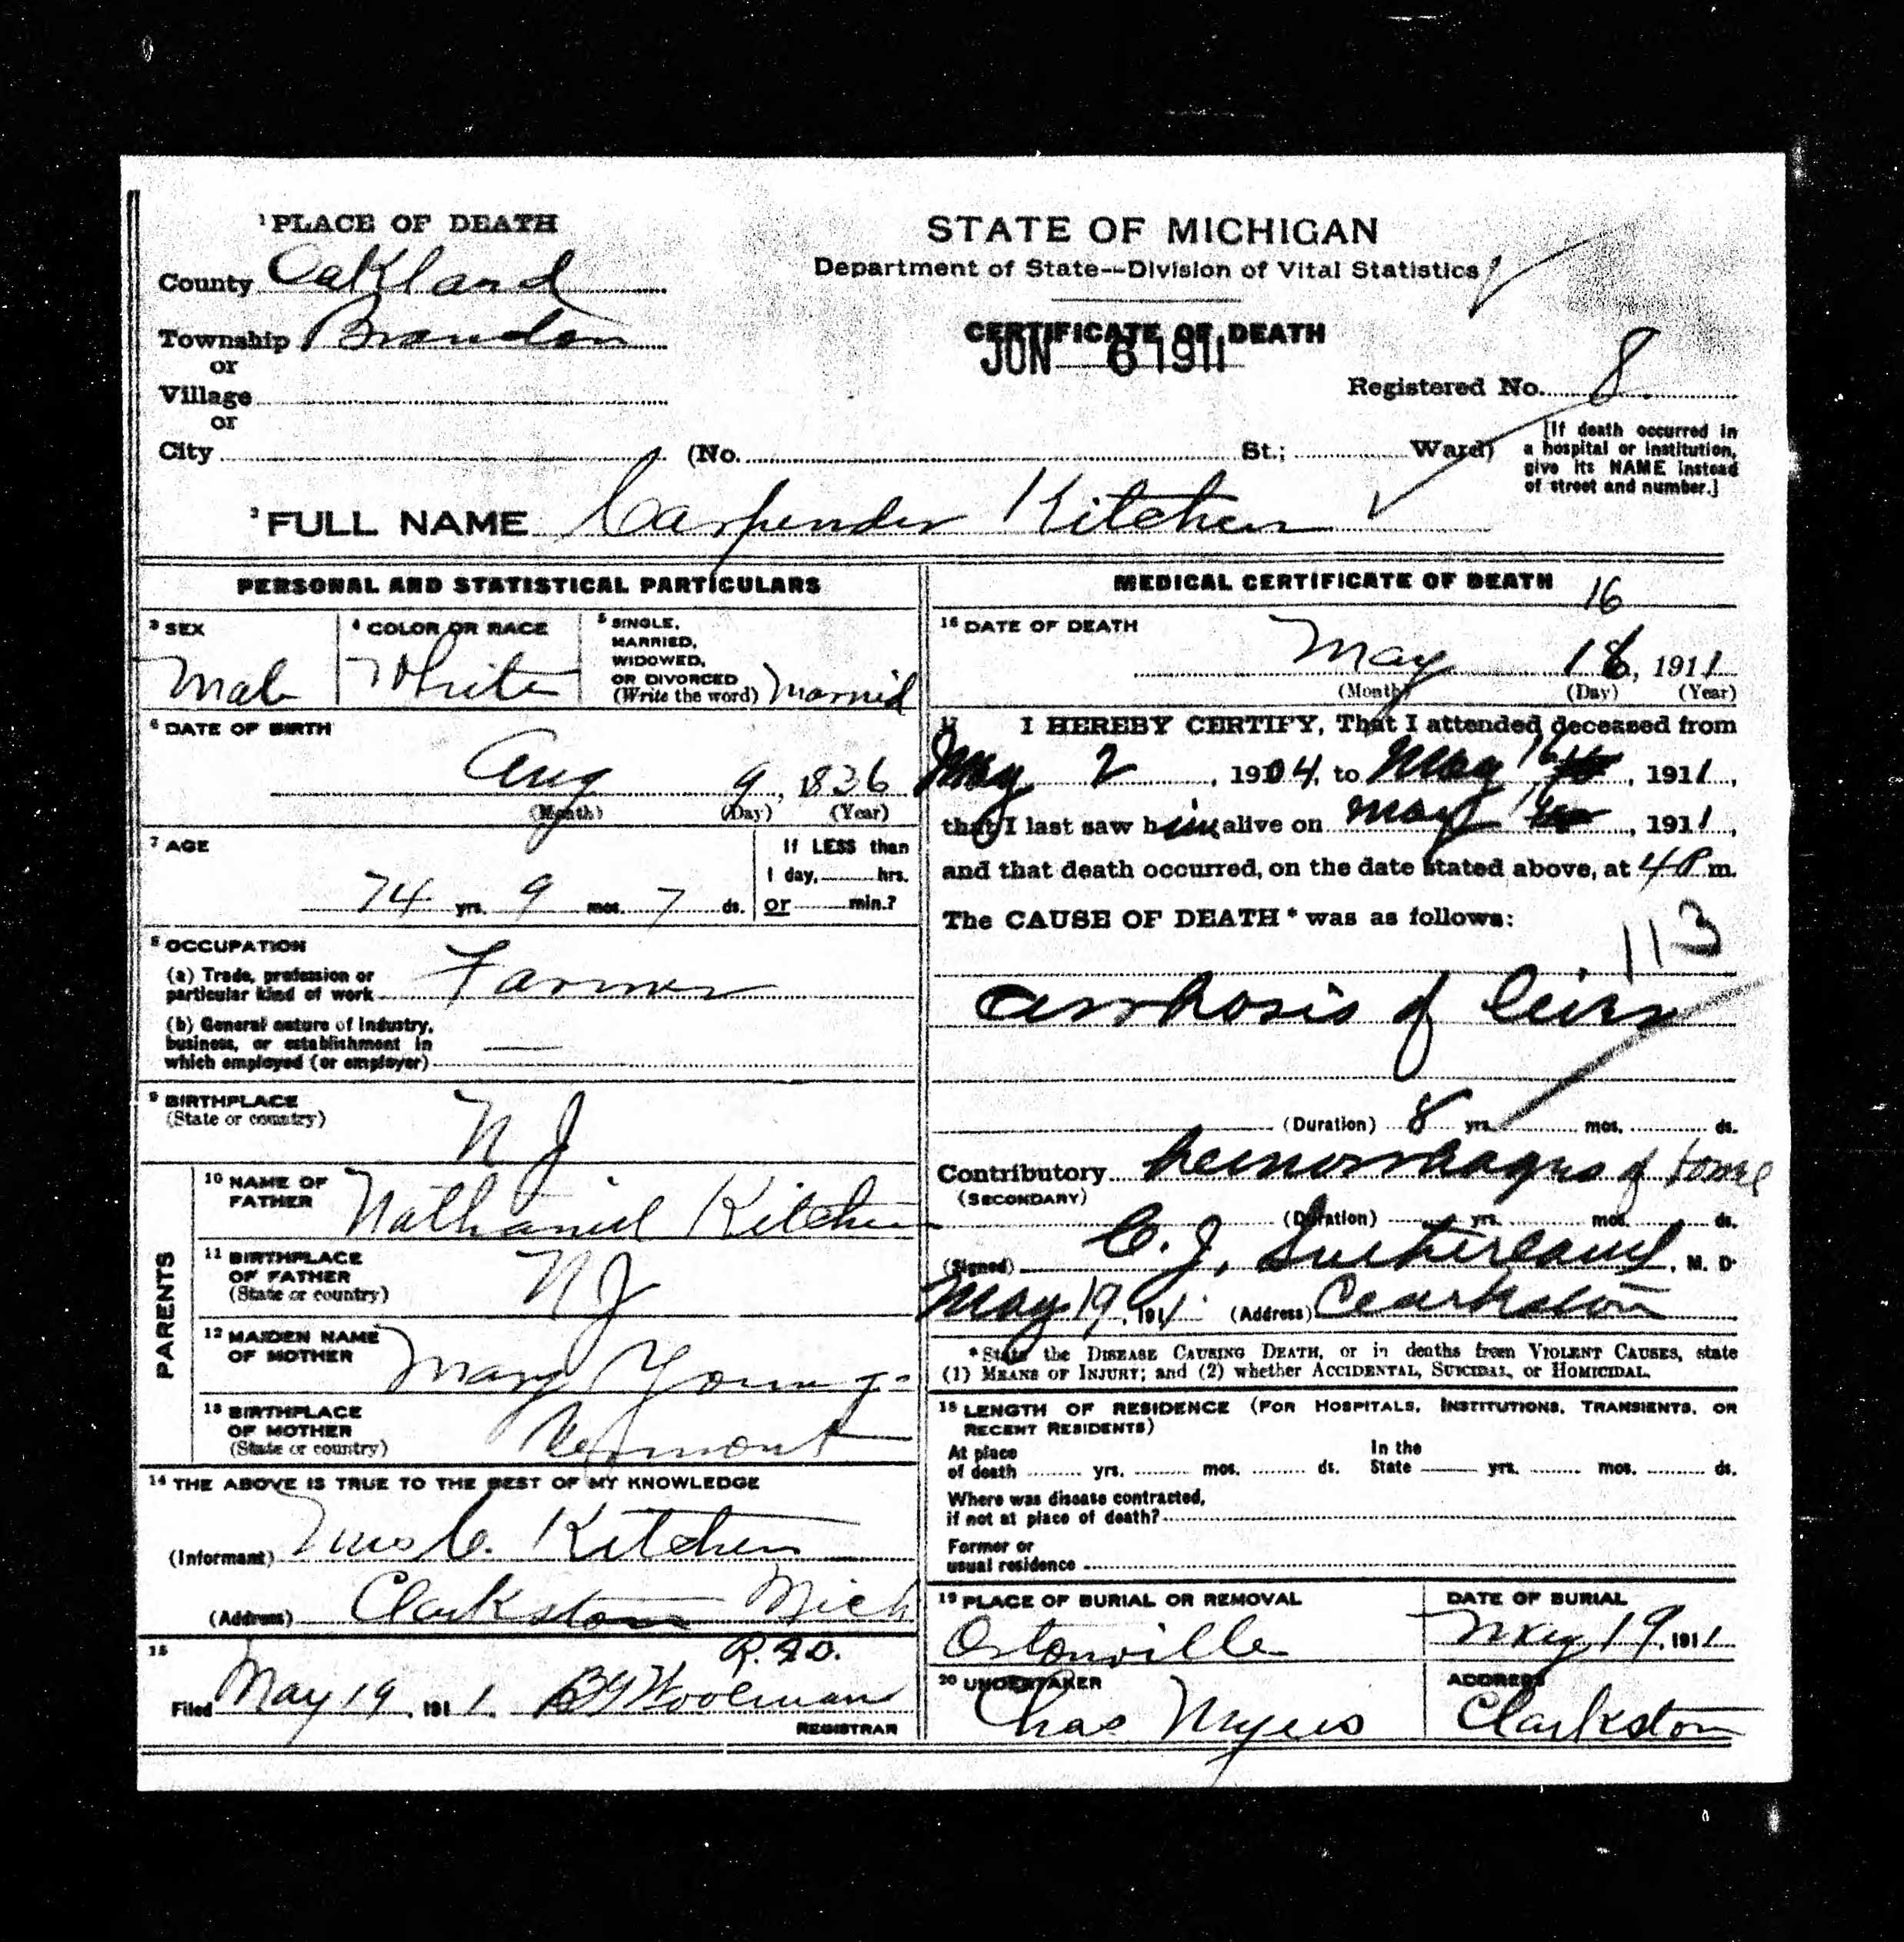 1 PLACE OF DEATH
County Oakland
Township Brandon
or
Village
or
City (No. St.; Ward)
STATE OF MICHIGAN
Department of State--Division of Vital Statistics
CERTIFICATE OF DEATH
JUN 6 1911
Registered No. 8
[If death occurred in
a hospital or institution,
give its NAME instead
of street and number.]
2 FULL NAME Carpender Kitchen
PERSONAL AND STATISTICAL PARTICULARS
3 SEX
Male
4 COLOR OR RACE
White
5 SINGLE,
MARRIED,
WIDOWED,
OR DIVORCED
(Write the word) Married
6 DATE OF BIRTH
Aug 9, 1836
(Month) (Day) (Year)
7 AGE
74 yrs. 9 mos. 7 ds.
If LESS than
1 day, hrs.
or min.?
8 OCCUPATION
(a) Trade, profession or
particular kind of work Farmer
(b) General nature of industry,
business, or establishment in
which employed (or employer) —
9 BIRTHPLACE
(State or country)
N J
PARENTS
10 NAME OF
FATHER Nathaniel Kitchen
11 BIRTHPLACE
OF FATHER
(State or country) N J
12 MAIDEN NAME
OF MOTHER Mary Young
13 BIRTHPLACE
OF MOTHER
(State or country) Vermont
14 THE ABOVE IS TRUE TO THE BEST OF MY KNOWLEDGE
(Informant) Mrs C. Kitchen
(Address) Clarkston Mich
R.F.D.
15
Filed May 19, 1911. Woolman
REGISTRAR
MEDICAL CERTIFICATE OF DEATH
16
16 DATE OF DEATH
May 16, 1911
(Month) (Day) (Year)
17 I HEREBY CERTIFY, That I attended deceased from
May 2, 1904, to May 16, 1911,
that I last saw him alive on May 16, 1911,
and that death occurred, on the date stated above, at 4 P m.
The CAUSE OF DEATH* was as follows:
113
cirrhosis of liver
(Duration) 8 yrs. mos. ds.
Contributory hemorrhages of bowel
(SECONDARY)
(Duration) yrs. mos. ds.
(Signed) C. J. Sutherland, M. D.
May 19, 1911 (Address) Clarkston
*State the DISEASE CAUSING DEATH, or in deaths from VIOLENT CAUSES, state
(1) MEANS OF INJURY; and (2) whether ACCIDENTAL, SUICIDAL, or HOMICIDAL.
18 LENGTH OF RESIDENCE (FOR HOSPITALS, INSTITUTIONS, TRANSIENTS, OR
RECENT RESIDENTS)
At place
of death yrs. mos. ds.
In the
State yrs. mos. ds.
Where was disease contracted,
if not at place of death?
Former or
usual residence
19 PLACE OF BURIAL OR REMOVAL
Ortonville
DATE OF BURIAL
May 19, 1911
20 UNDERTAKER
Chas Myers
ADDRESS
Clarkston